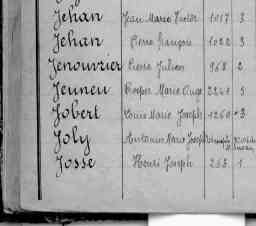 Jehan Jean Marie Victor 1017 3
Jehan Pierre François 1022 3
Jenouvrier Pierre Julien 968 2
Jeuneu Prosper Marie Ange 2241 5
Jobert Louis Marie Joseph 1260 3
Joly Antonin Marie Joseph
Josse Henri Joseph 263 1